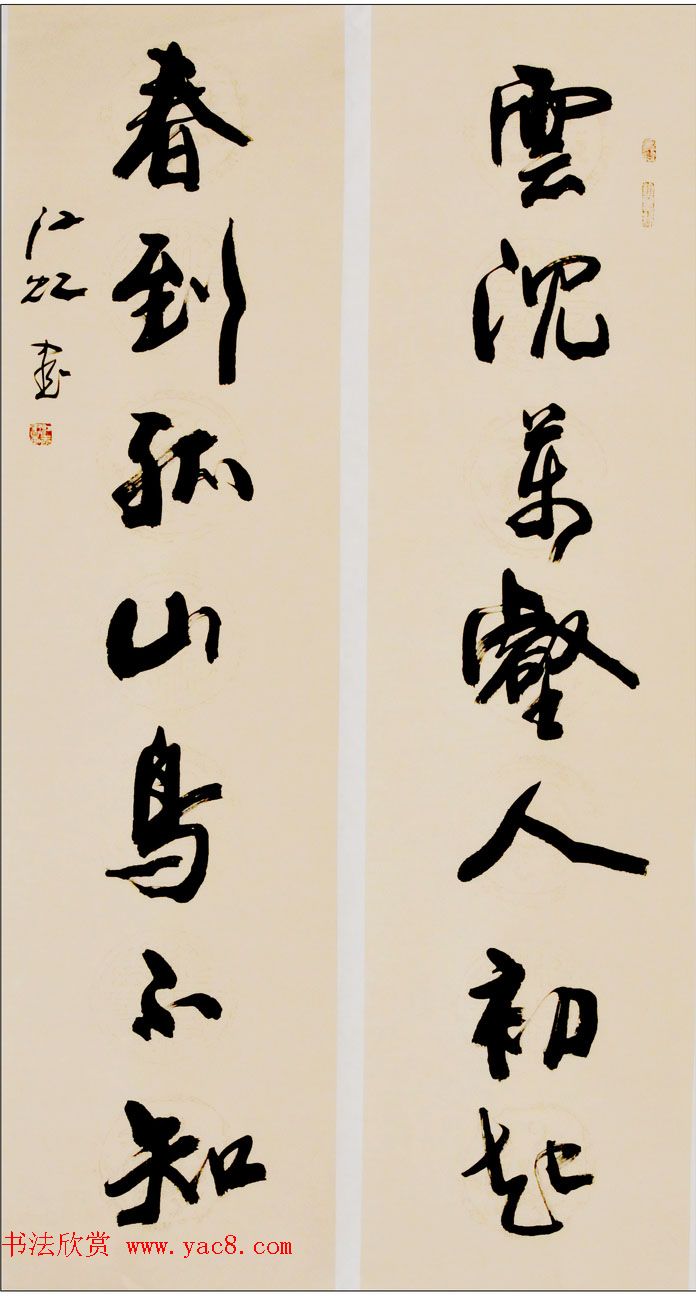 雲沉萬壑人初起
春到孤山鳥不知
江虹書
书法欣赏 www.yac8.com